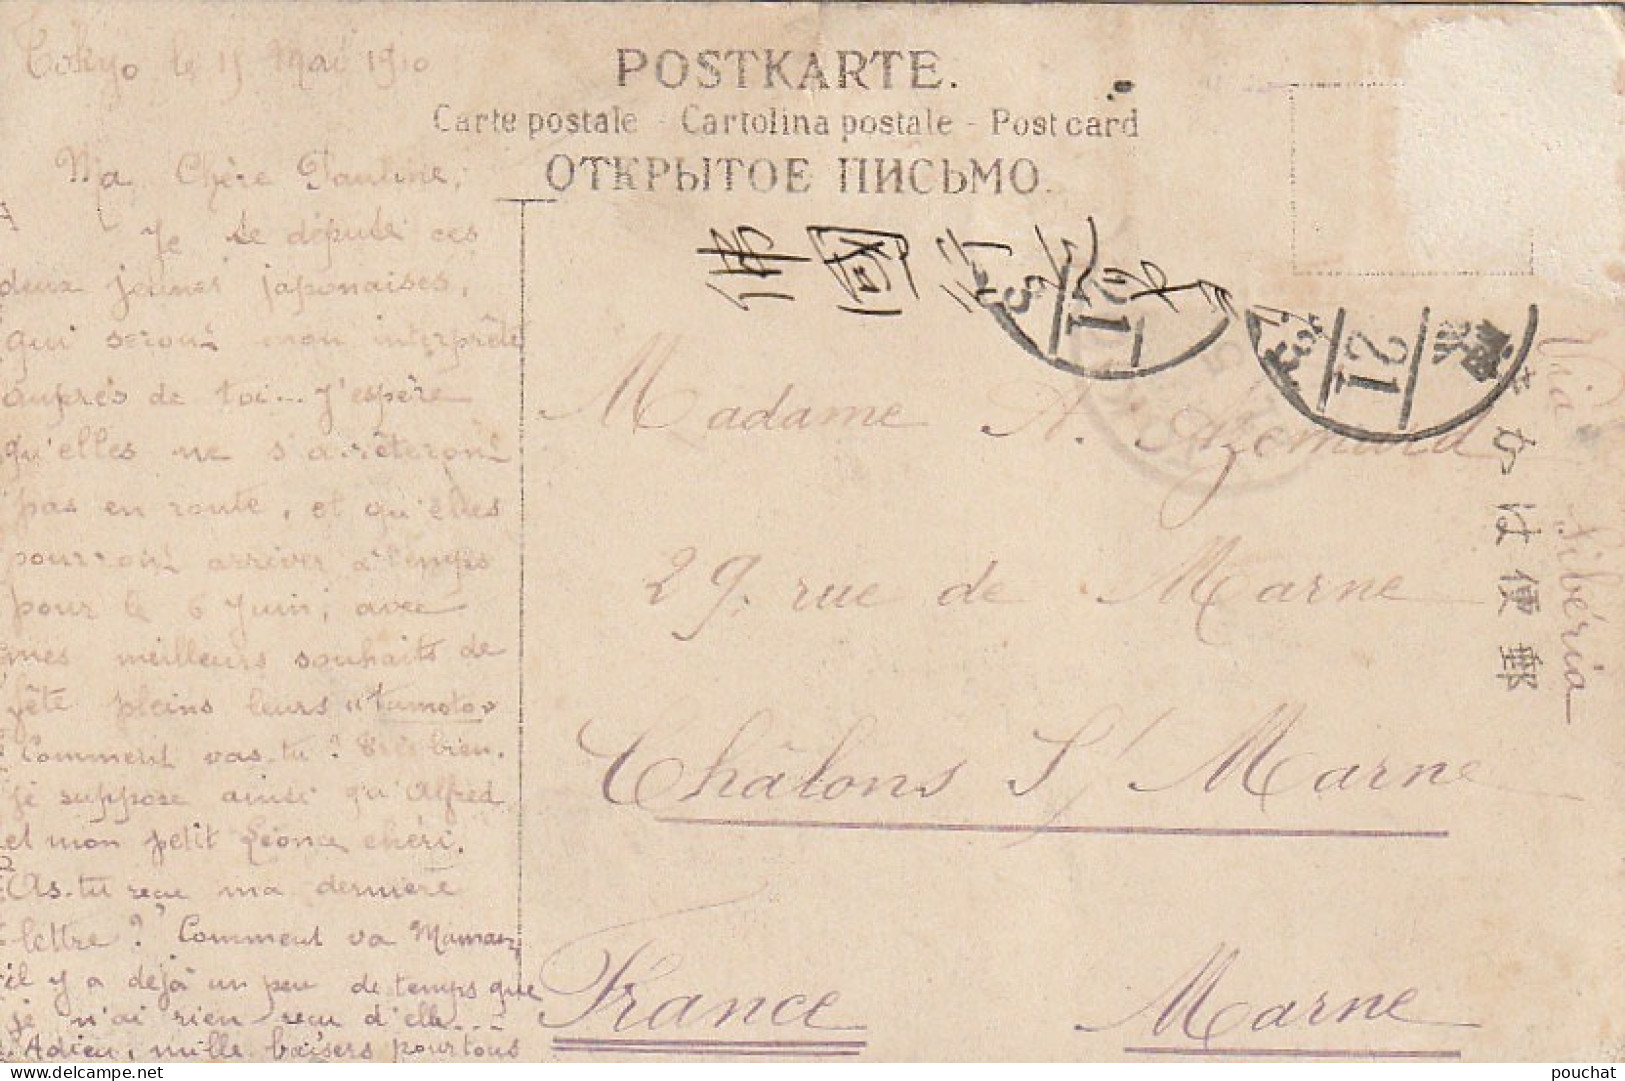 Tokyo le 15 Mai 1910
POSTKARTE.
Carte postale - Cartolina postale - Post card
ОТКРЫТОЕ ПИСЬМО.
Ma Chère Pauline,
Je te députe ces
deux jeunes japonaises,
qui seront mon interprète
auprès de toi... J'espère
qu'elles ne s'arrêteront
pas en route, et qu'elles
pourront arriver à temps
pour le 6 Juin, avec
mes meilleurs souhaits de
fête pleins leurs "tamoto"
Comment vas-tu? Très bien,
je suppose ainsi qu'Alfred
et mon petit Léonce chéri.
As-tu reçu ma dernière
lettre? Comment va Maman,
il y a déjà un peu de temps que
je n'ai rien reçu d'elle...
Adieu, mille baisers pour tous
佛國
21
21
Madame A. Azemard
29. rue de Marne
Châlons S/ Marne
France Marne
Via Sibéria
郵便はかき
pouchat